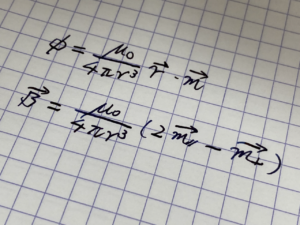 ϕ = μ₀/4πr³ r⃗ · m⃗
B⃗ = μ₀/4πr³ (2 m⃗ᵣ − m⃗